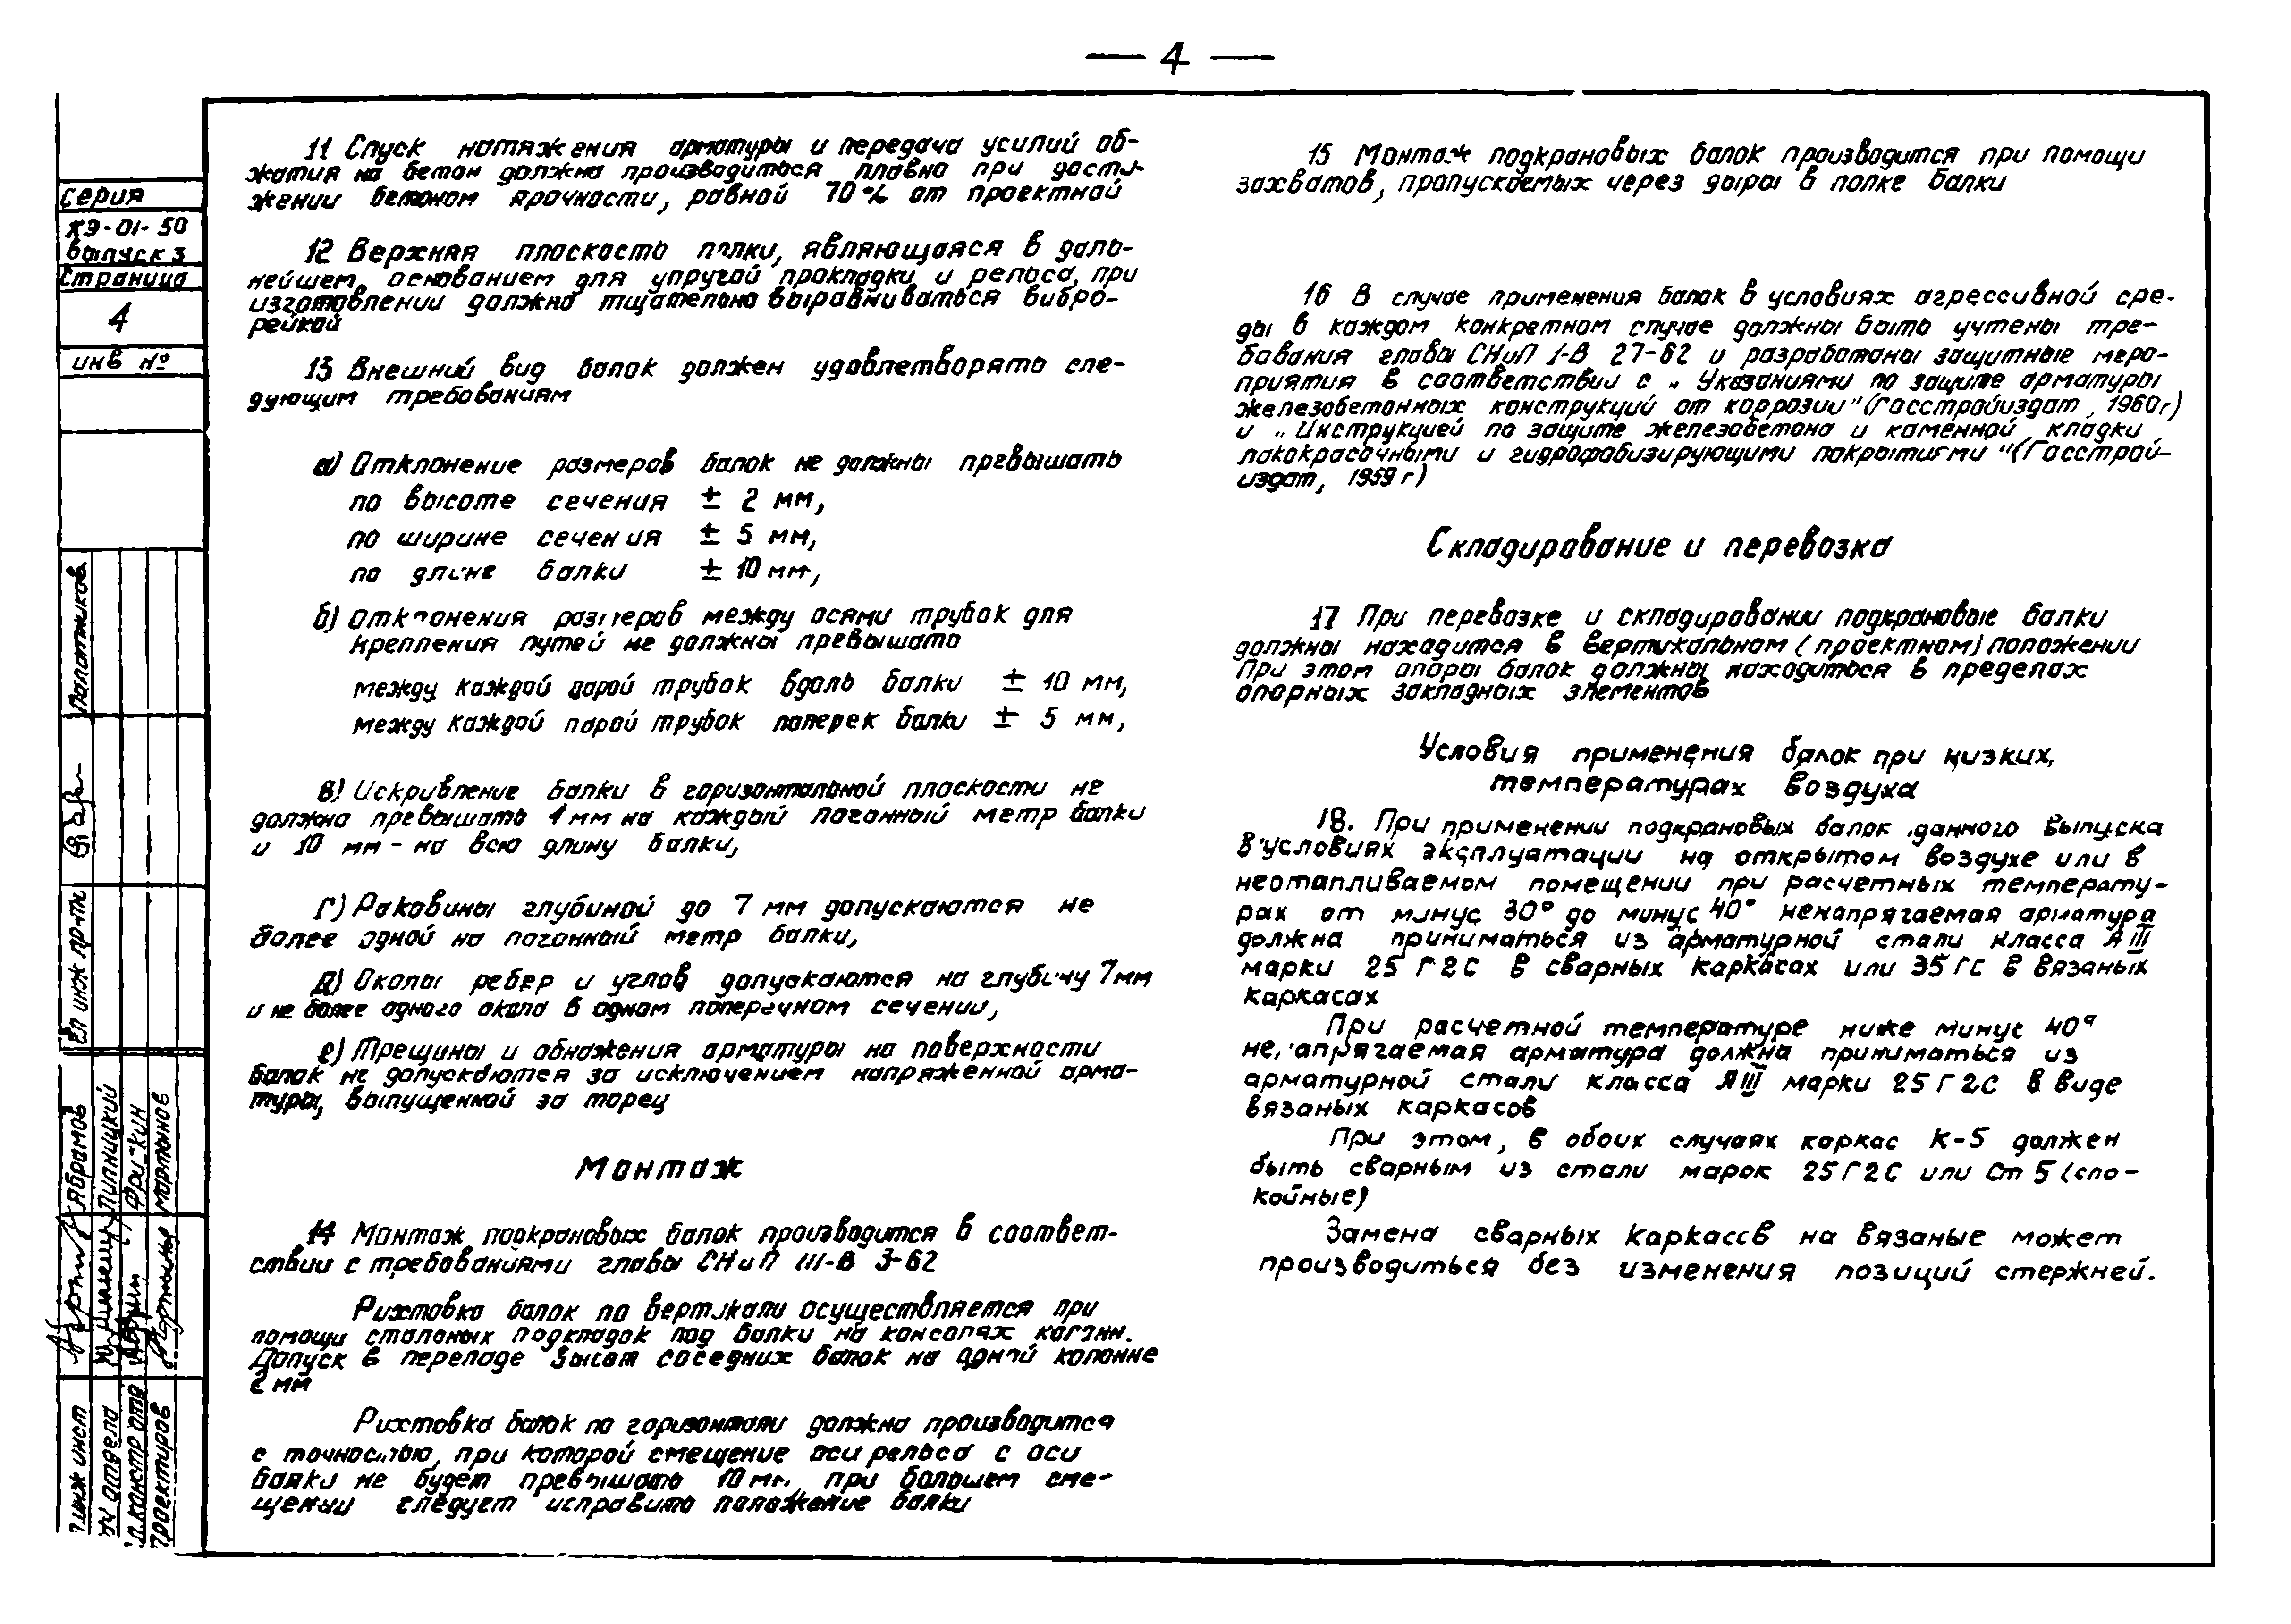 — 4 —
серия
КЭ-01-50
выпуск 3
Страница
4
инв №
11 Спуск натяжения арматуры и передача усилий об-
жатия на бетон должна производиться плавно при дости-
жении бетоном прочности, равной 70% от проектной
12 Верхняя плоскость полки, являющаяся в даль-
нейшем основанием для упругой прокладки и рельса, при
изготовлении должна тщательно выравниваться вибро-
рейкой
13 Внешний вид балок должен удовлетворять сле-
дующим требованиям
а) Отклонение размеров балок не должны превышать
по высоте сечения ± 2 мм,
по ширине сечения ± 5 мм,
по длине балки ± 10 мм,
б) Отклонения размеров между осями трубок для
крепления путей не должны превышать
между каждой парой трубок вдоль балки ± 10 мм,
между каждой парой трубок поперек балки ± 5 мм,
в) Искривление балки в горизонтальной плоскости не
должно превышать 1 мм на каждый погонный метр балки
и 10 мм - на всю длину балки,
г) Раковины глубиной до 7 мм допускаются не
более одной на погонный метр балки,
д) Околы ребер и углов допускаются на глубину 7мм
и не более одного окола в одном поперечном сечении,
е) Трещины и обнажения арматуры на поверхности
балок не допускаются за исключением напряженной арма-
туры, выпущенной за торец
Монтаж
14 Монтаж подкрановых балок производится в соответ-
ствии с требованиями главы СНиП III-В 3-62
Рихтовка балок по вертикали осуществляется при
помощи стальных подкладок под балки на консолях колонн.
Допуск в перепаде высот соседних балок на одной колонне
2 мм
Рихтовка балок по горизонтали должна производится
с точностью, при которой смещение оси рельса с оси
балки не будет превышать 10 мм, при большем сме-
щении следует исправить положение балки
15 Монтаж подкрановых балок производится при помощи
захватов, пропускаемых через дыры в полке балки
16 В случае применения балок в условиях агрессивной сре-
ды в каждом конкретном случае должны быть учтены тре-
бования главы СНиП I-В 27-62 и разработаны защитные меро-
приятия в соответствии с „Указаниями по защите арматуры
железобетонных конструкций от коррозии" (Госстройиздат, 1960г)
и „Инструкцией по защите железобетона и каменной кладки,
лакокрасочными и гидрофобизирующими покрытиями" (Госстрой-
издат, 1959 г)
Складирование и перевозка
17 При перевозке и складировании подкрановые балки
должны находится в вертикальном (проектном) положении
При этом опоры балок должны находиться в пределах
опорных закладных элементов
Условия применения балок при низких,
температурах воздуха
18. При применении подкрановых балок данного выпуска
в условиях эксплуатации на открытом воздухе или в
неотапливаемом помещении при расчетных температу-
рах от минус 30° до минус 40° ненапрягаемая арматура
должна приниматься из арматурной стали класса А III
марки 25 Г2С в сварных каркасах или 35 ГС в вязаных
каркасах
При расчетной температуре ниже минус 40°
ненапрягаемая арматура должна приниматься из
арматурной стали класса А III марки 25 Г2С в виде
вязаных каркасов
При этом, в обоих случаях каркас К-5 должен
быть сварным из стали марок 25Г2С или Ст 5 (спо-
койные)
Замена сварных каркасов на вязаные может
производиться без изменения позиций стержней.
Гл инж пр-та
Лапатников
Абрамов
Липницкий
Фришкин
Мартынов
Гл инж инст
Нач отдела
Гл.констр отд
Проектиров